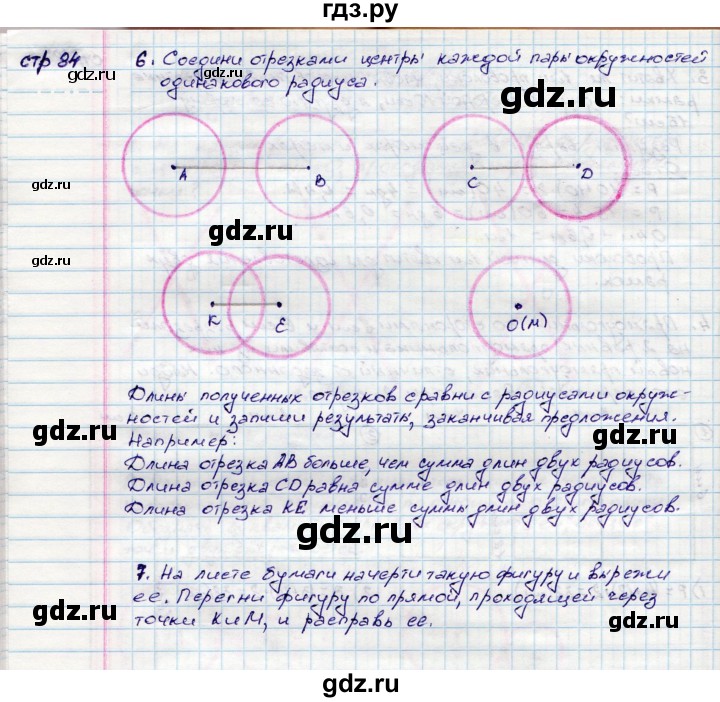 гдз.ру
стр 84
6. Соедини отрезками центры каждой пары окружностей
одинакового радиуса.
gdz.ru
gdz.ru
gdz.ru
A
B
C
D
gdz.ru
gdz.ru
gdz.ru
K
E
O(M)
gdz.ru
Длины полученных отрезков сравни с радиусами окруж-
ностей и запиши результаты, заканчивая предложения.
gdz.ru
Например:
Длина отрезка AB больше, чем сумма длин двух радиусов.
Длина отрезка CD равна сумме длин двух радиусов.
Длина отрезка KE меньше суммы длин двух радиусов.
gdz.ru
7. На листе бумаги начерти такую фигуру и вырежи
ее. Перегни фигуру по прямой, проходящей через
gdz.ru
gdz.ru
точки K и M, и расправь ее.
gdz.ru